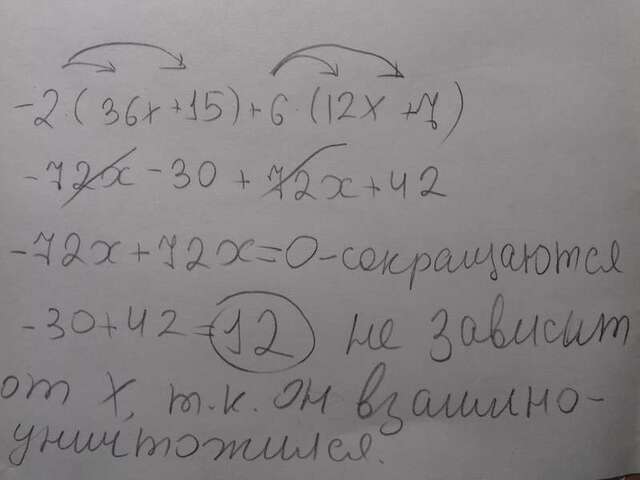 -2·(36x+15)+6·(12x+7)
-72x-30+72x+42
-72x+72x=0-сокращаются
-30+42=12 не зависит
от x, т.к. он взаимно-
уничтожился.